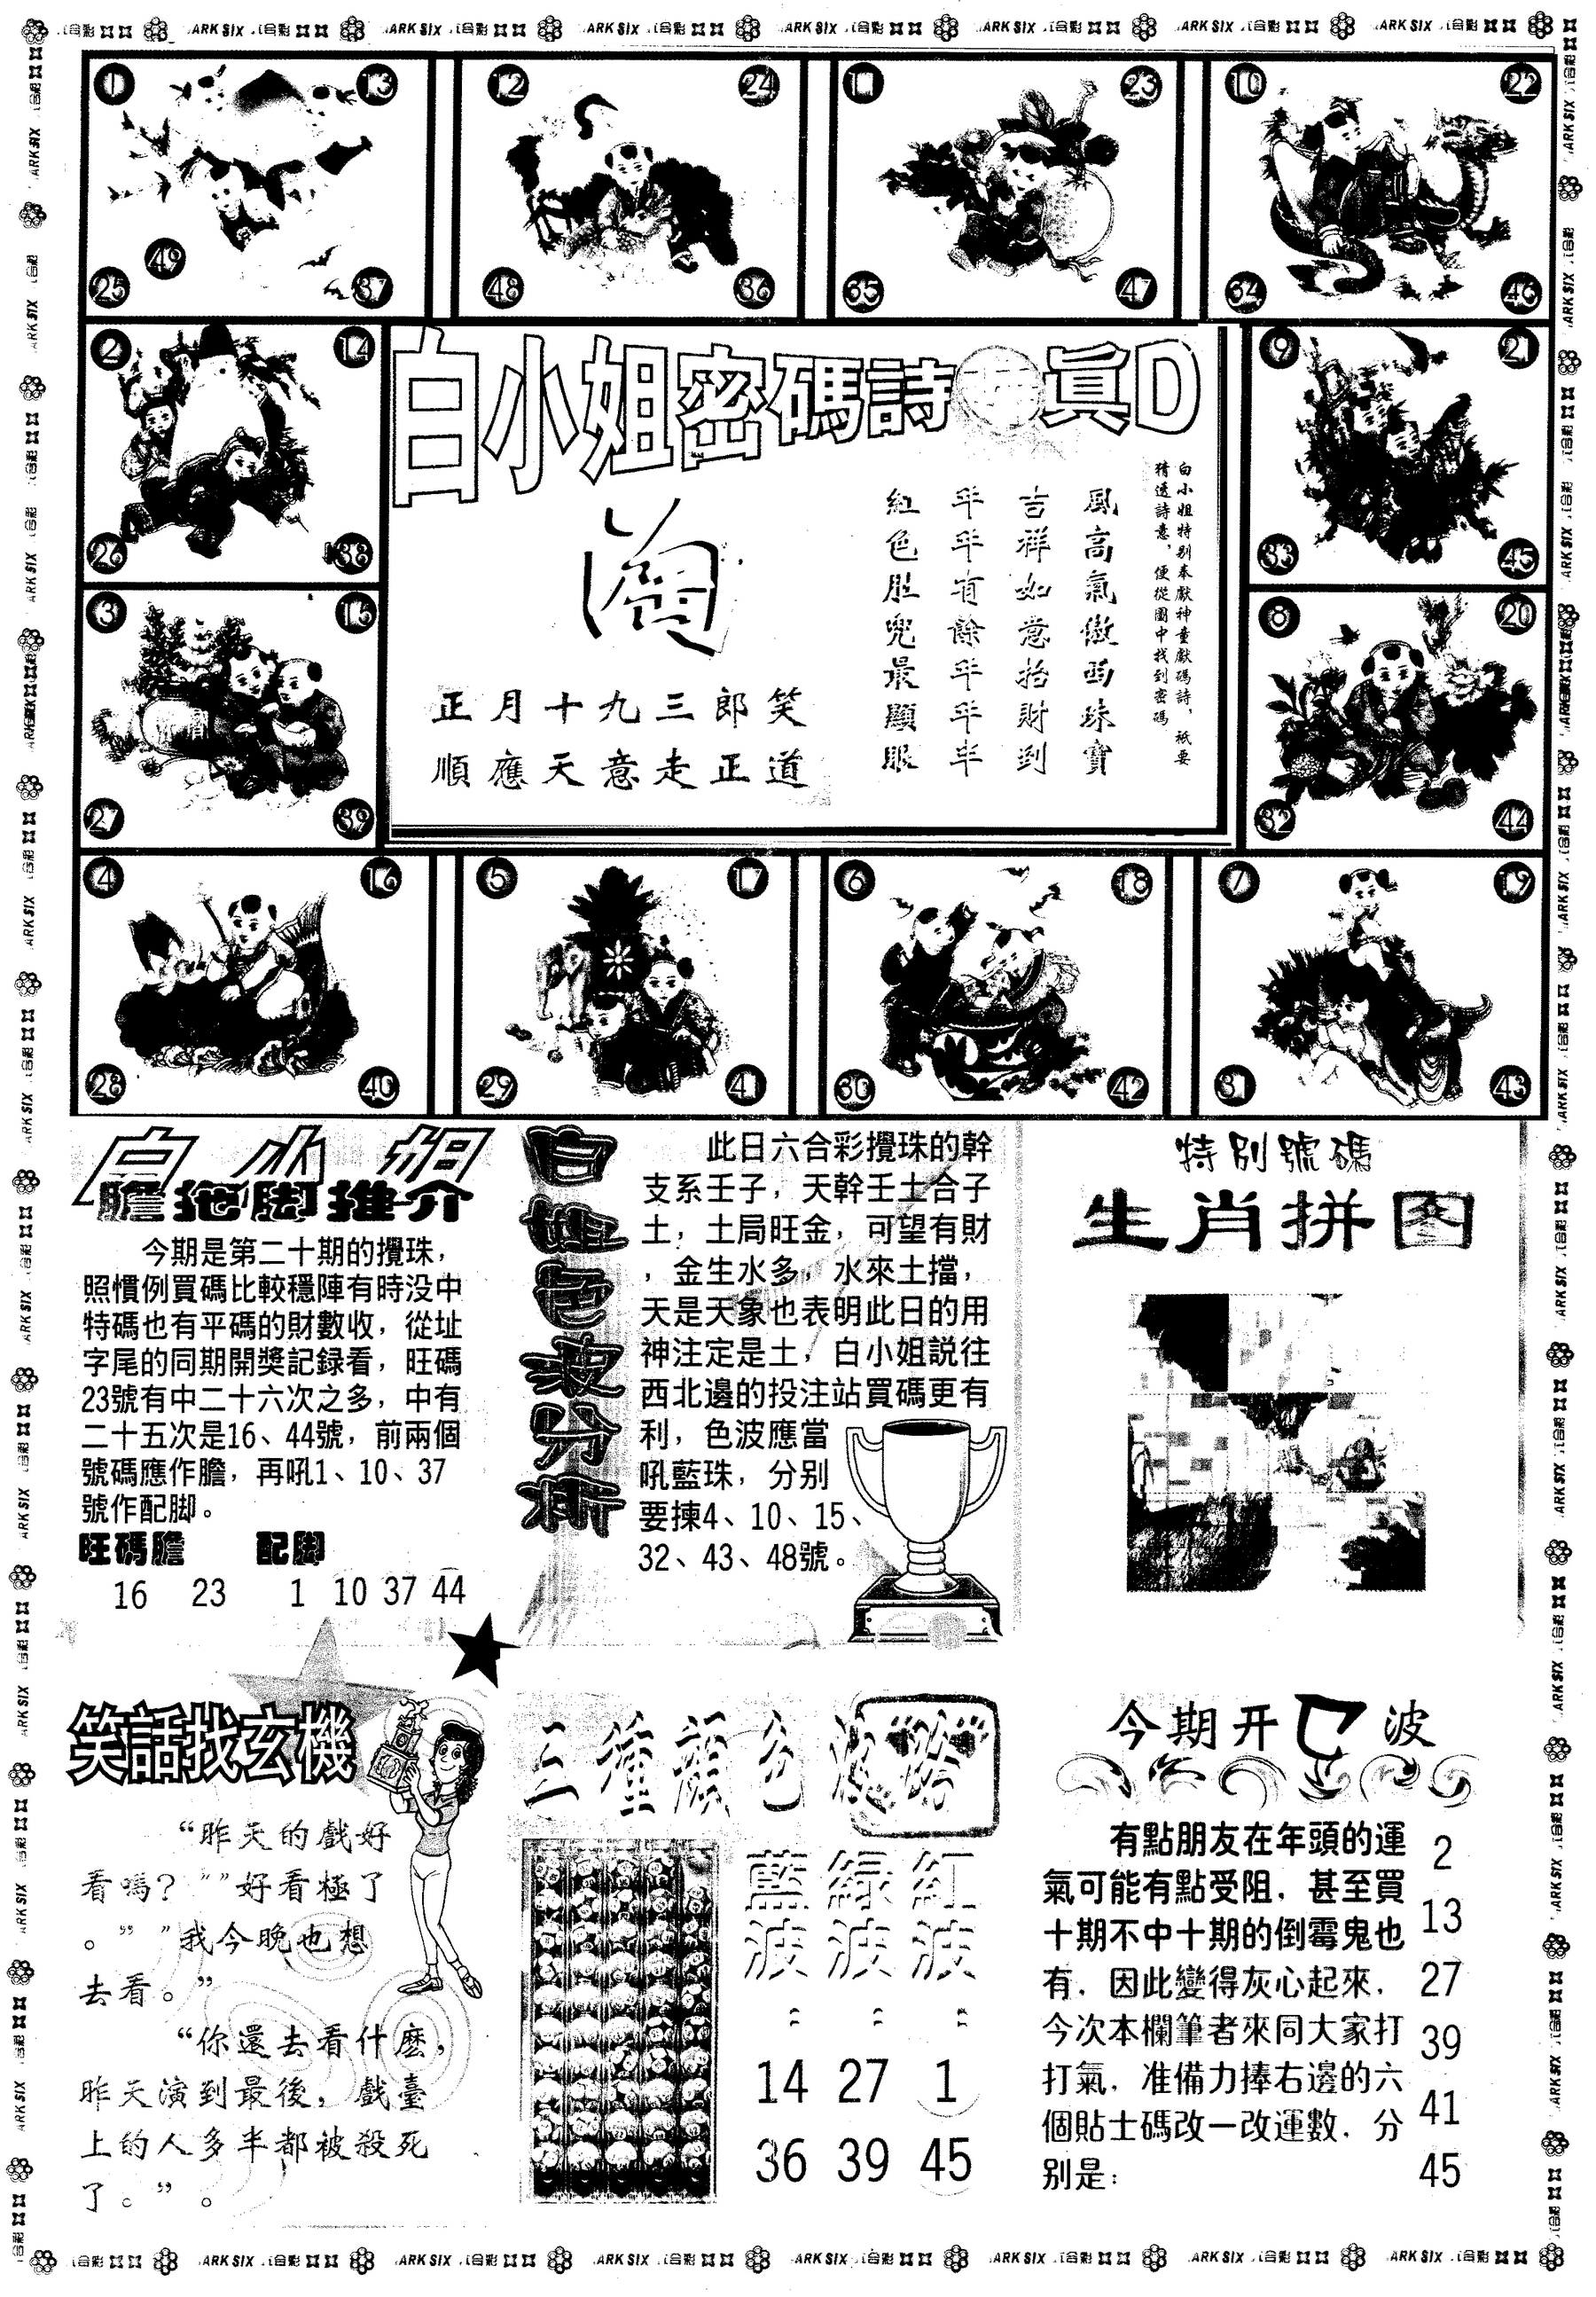 1 13 12 24 11 23 10 22
49
25 37 48 36 35 47 34 46
2 14
26 38
3 15
27 39
白小姐密碼詩 眞D
白小姐特别奉獻神童獻碼詩，祇要
猜透詩意，便從圖中找到密碼
鳳高氣傲西珠寶
吉祥如意招財到
年年有餘年年丰
紅色肚兜最顯眼
正月十九三郎笑
順應天意走正道
9 21
33 45
8 20
32 44
4 16 5 17 6 18 7 19
28 40 29 41 30 42 31 43
白小姐
膽拖脚推介
今期是第二十期的攪珠，
照慣例買碼比較穩陣有時没中
特碼也有平碼的財數收，從址
字尾的同期開獎記録看，旺碼
23號有中二十六次之多，中有
二十五次是16、44號，前兩個
號碼應作膽，再吼1、10、37
號作配脚。
旺碼膽 配脚
16 23 1 10 37 44
白姐色波分析
此日六合彩攪珠的幹
支系壬子，天幹壬土合子
土，土局旺金，可望有財
，金生水多，水來土擋，
天是天象也表明此日的用
神注定是土，白小姐説往
西北邊的投注站買碼更有
利，色波應當
吼藍珠，分别
要揀4、10、15、
32、43、48號。
特别號碼
生肖拼图
笑話找玄機
“昨天的戲好
看嗎？””好看極了
。””我今晚也想
去看。”
“你還去看什麽，
昨天演到最後，戲臺
上的人多半都被殺死
了。”。
三種顔色
藍波：
14
36
緑波：
27
39
紅波：
1
45
今期开 波
有點朋友在年頭的運
氣可能有點受阻．甚至買
十期不中十期的倒霉鬼也
有．因此變得灰心起來．
今次本欄筆者來同大家打
打氣．准備力捧右邊的六
個貼士碼改一改運數．分
别是：
2
13
27
39
41
45